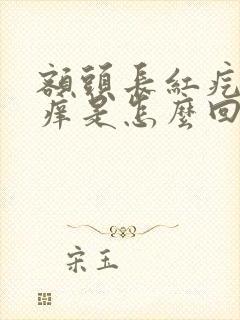 額頭長紅疙
癢是怎麼回
宋玉